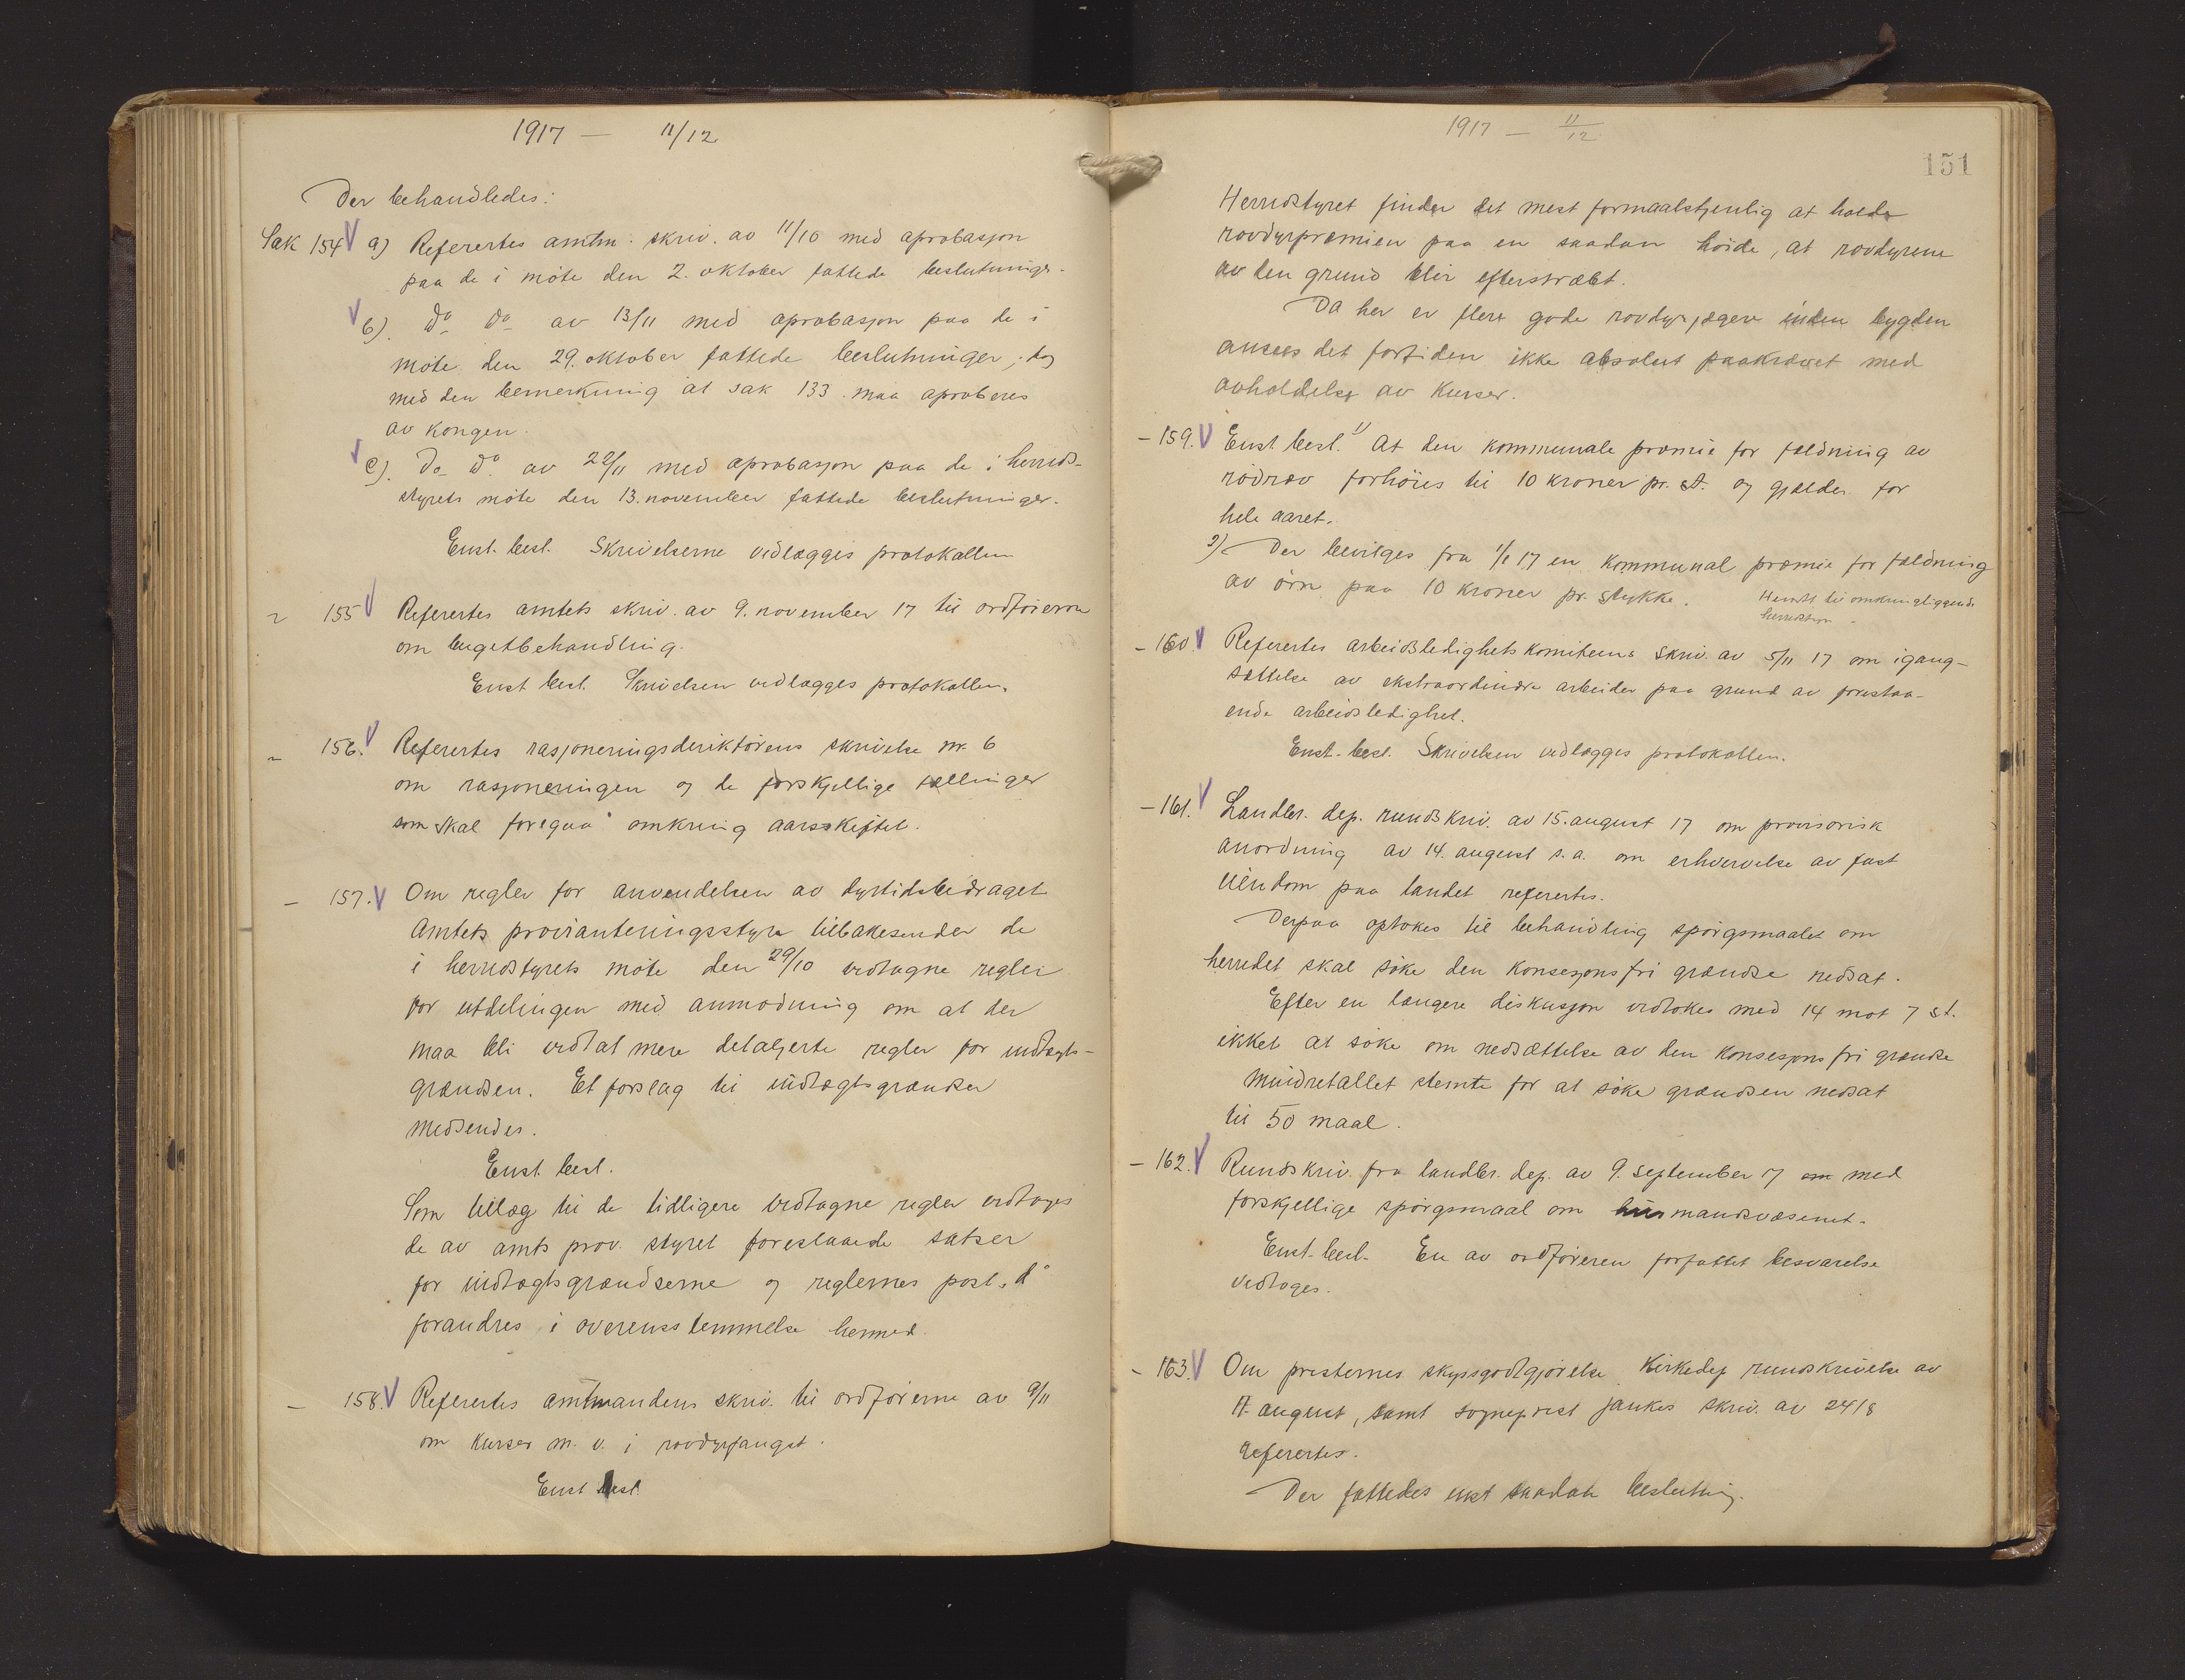 1917 — 11/12
Der behandledes:
Sak 154 a) Referertes amtm. skriv. av 11/10 med aprobasjon
paa de i möte den 2. oktober fattede beslutninger.
b). do do av 13/11 med aprobasjon paa de i
möte den 29. oktober fattede beslutninger, dog
med den bemerkning at sak 133 maa aproberes
av kongen.
c). do do av 22/11 med aprobasjon paa de i herreds-
styrets möte den 13. november fattede beslutninger.
Enst. besl. Skrivelserne vedlægges protokollen
" 155 Referertes amtets skriv. av 9. november 17 til ordförerne
om bugetbehandling.
Enst besl. Skrivelsen vedlægges protokollen.
" 156. Referertes rasjoneringsdirektörens skrivelse nr. 6
om rasjoneringen og de forskjellige tællinger
som skal foregaa omkring aarsskiftet.
— 157. Om regler for anvendelsen av dyrtidsbidraget
Amtets provianteringsstyre tilbakesender de
i herredstyrets möte den 29/10 vedtagne regler
for utdelingen med anmodning om at der
maa bli vedtat mere detaljerte regler for indtægts-
grændsen. Et forslag til indtægtsgrændser
medsendes.
Enst. besl.
Som tillæg til de tidligere vedtagne regler vedtages
de av amts prov. styret foreslaaede satser
for indtægtsgrændserne og reglernes post "d"
forandres i overensstemmelse hermed.
— 158. Referertes amtmandens skriv. til ordförerne av 9/11
om kurser m. v. i rovdyrfangst.
Enst besl.
1917 — 11/12.
151
Herredstyret finder det mest formaalstjenlig at holde
rovdyrpræmien paa en saadan höide, at rovdyrene
av den grund blir efterstræbt.
Da her er flere gode rovdyrjægere inden bygden
ansees det fortiden ikke absolut paakrævet med
avholdelse av kurser.
— 159. Enst besl. 1) At den kommunale præmie for fældning av
rödræv forhöies til 10 kroner pr. st. og gjælder for
hele aaret.
2) Der bevilges fra 1/1 17 en kommunal præmie for fældning
av örn paa 10 kroner pr. stykke. Henst. til omkringliggende
herredstyrer.
— 160. Referertes arbeidsledighetskomiteens skriv. av 5/11 17 om igang-
sættelse av ekstraordinære arbeider paa grund av forestaa-
ende arbeidsledighet.
Enst. besl. Skrivelsen vedlægges protokollen.
— 161. Landbr. dep. rundskriv. av 15. august 17 om provisorisk
anordning av 14. august s.a. om erhvervelse av fast
eiendom paa landet referertes.
Derpaa optokes til behandling spörgsmaalet om
herredet skal söke den konsesjonsfri grændse nedsat.
Efter en længere diskusjon vedtokes med 14 mot 7 st.
ikke at söke om nedsættelse av den konsesjonsfri grændse
Mindretallet stemte for at söke grændsen nedsat
til 50 maal.
— 162. Rundskriv. fra landbr. dep. av 9. september 17 om med
forskjellige spörgsmaal om husmandsvæsenet.
Enst. besl. En av ordföreren forfattet besvarelse
vedtoges.
— 163. Om presternes skyssgodtgjörelse. Kirkedep rundskrivelse av
17. august, samt sogneprest Jankes skriv. av 24/8
referertes.
Der fattedes enst saadan beslutning.